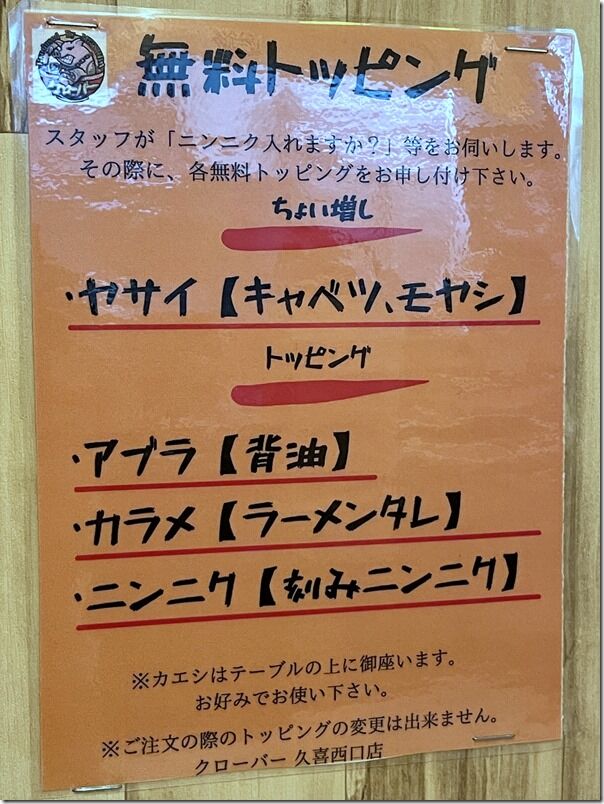 クローバー
無料トッピング
スタッフが「ニンニク入れますか？」等をお伺いします。
その際に、各無料トッピングをお申し付け下さい。
ちょい増し
・ヤサイ【キャベツ、モヤシ】
トッピング
・アブラ【背油】
・カラメ【ラーメンタレ】
・ニンニク【刻みニンニク】
※カエシはテーブルの上に御座います。
お好みでお使い下さい。
※ご注文の際のトッピングの変更は出来ません。
クローバー 久喜西口店